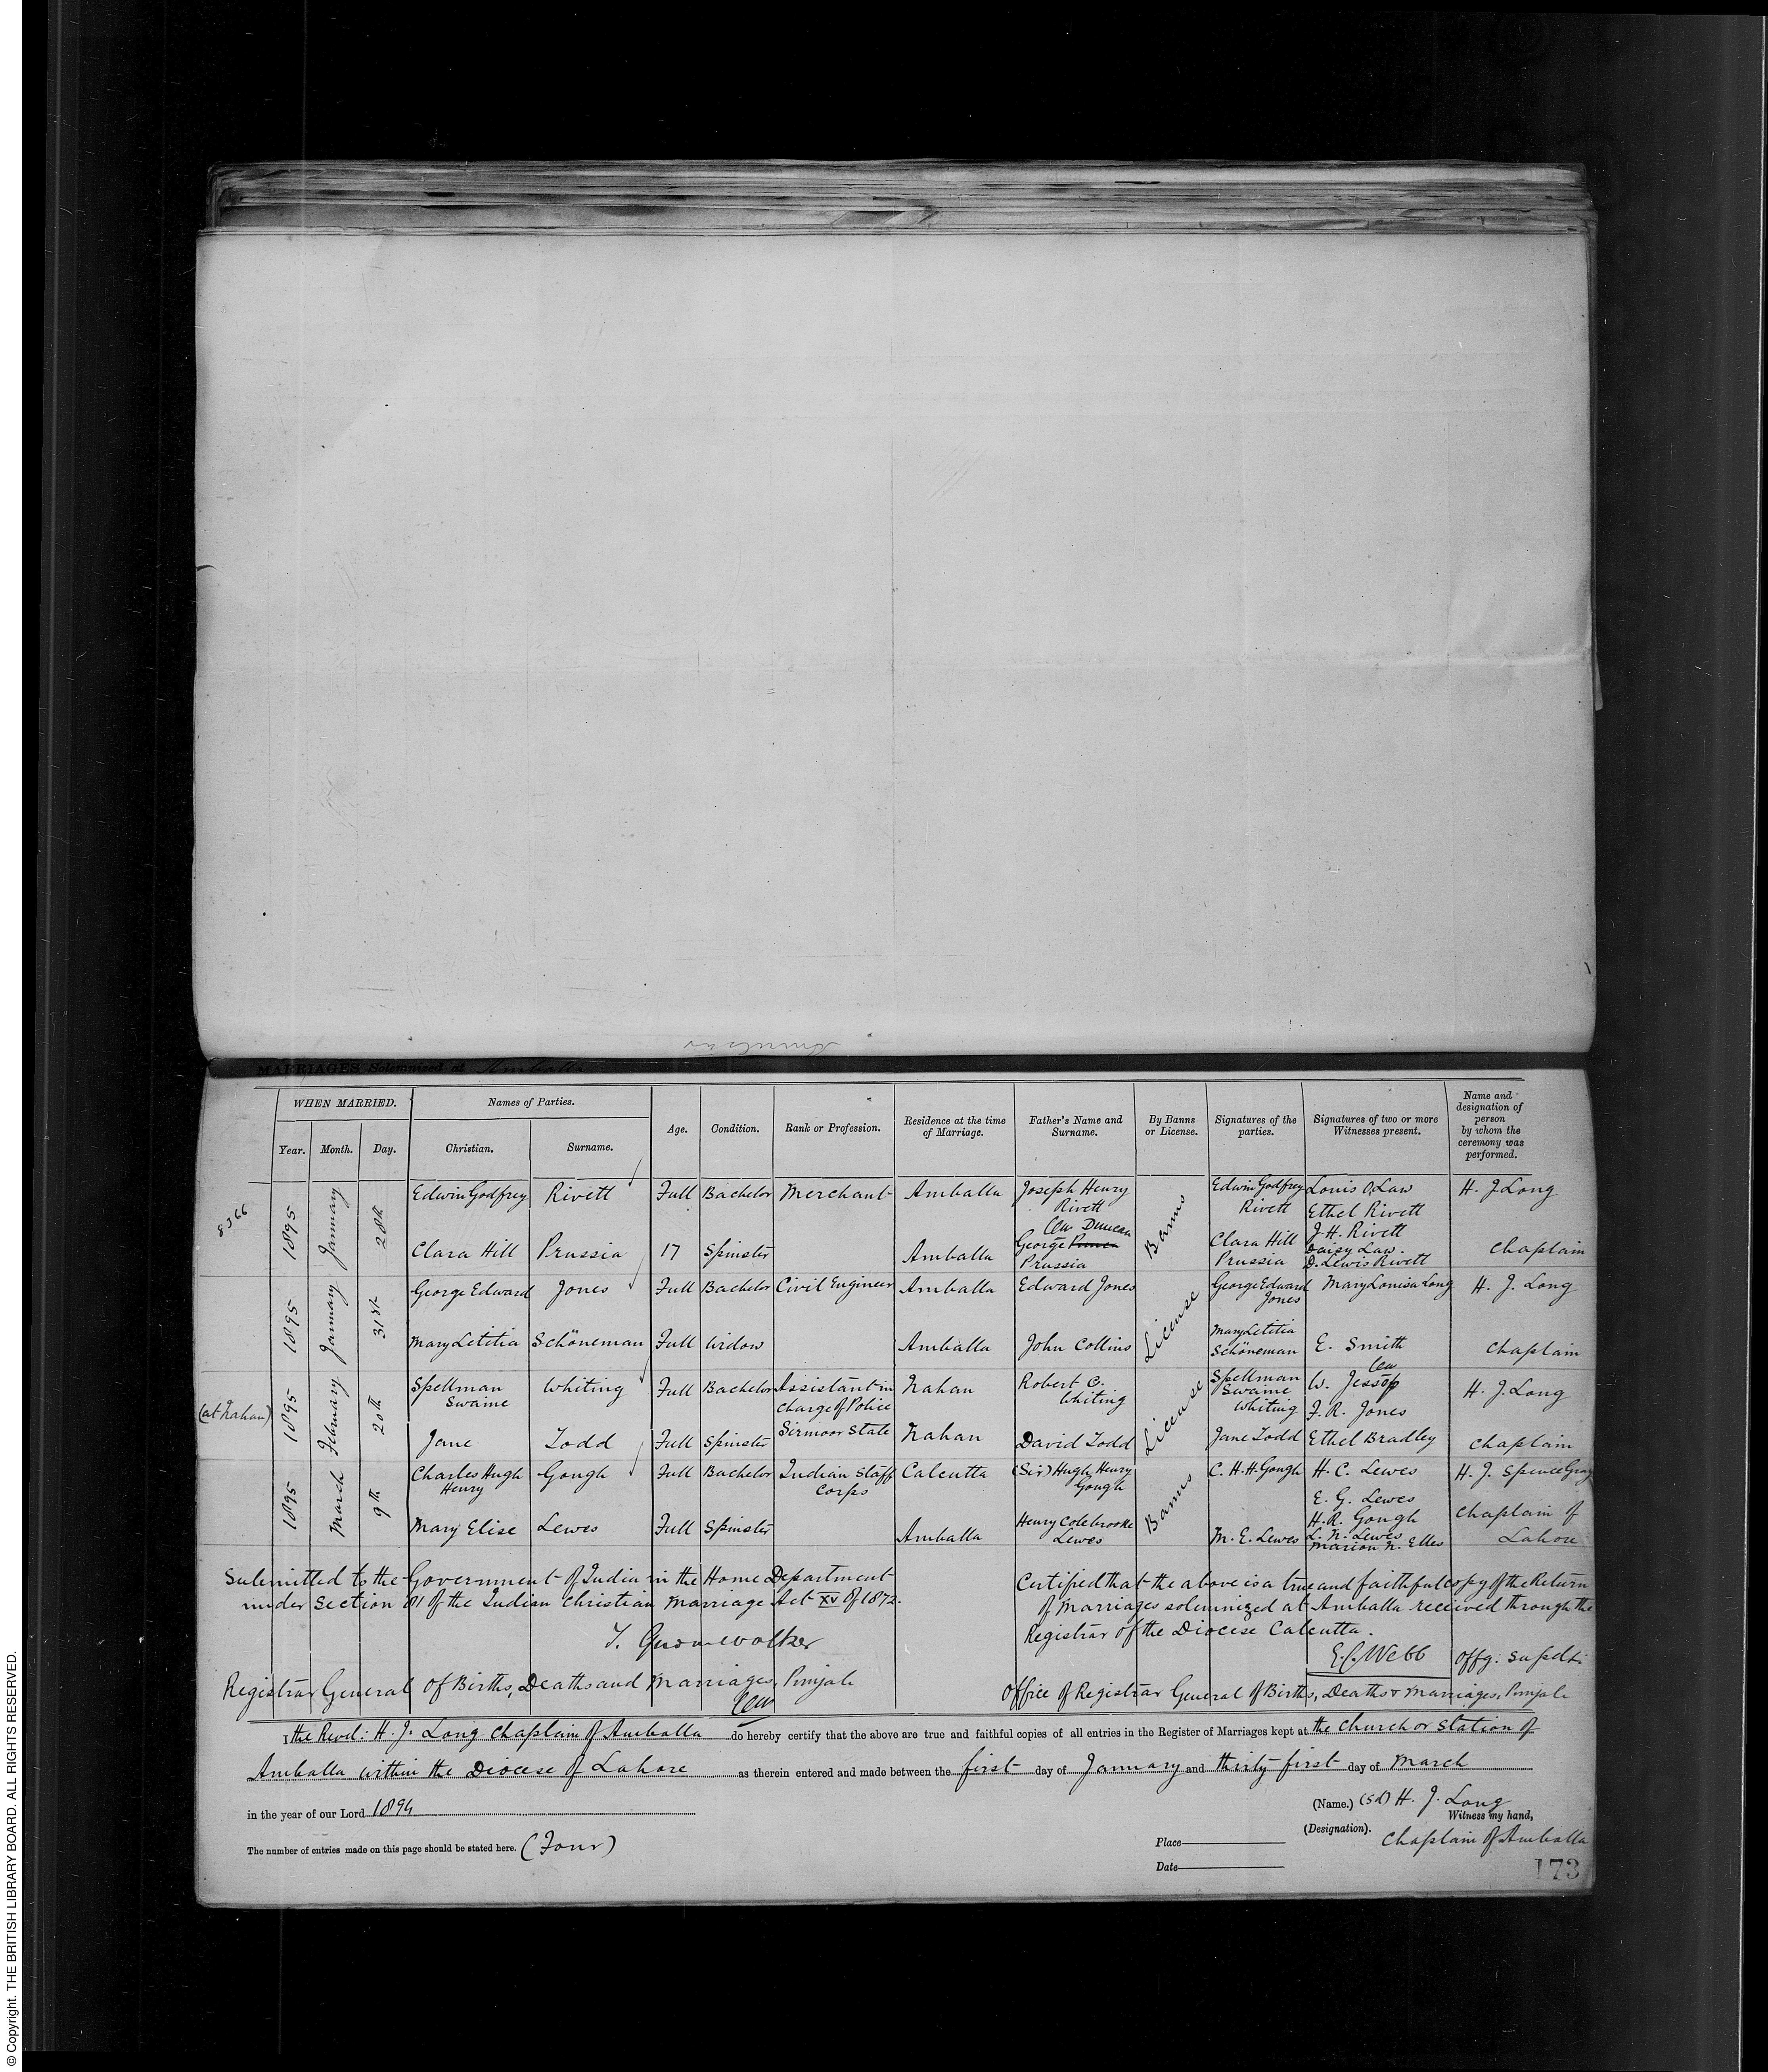 MARRIAGES Solemnized at Amballa
WHEN MARRIED.
Names of Parties.
Age.
Condition.
Rank or Profession.
Residence at the time
of Marriage.
Father's Name and
Surname.
By Banns
or License.
Signatures of the
parties.
Signatures of two or more
Witnesses present.
Name and
designation of
person
by whom the
ceremony was
performed.
Year.
Month.
Day.
Christian.
Surname.
8366
1895
January
28th
Edwin Godfrey
Rivett
Full
Bachelor
Merchant
Amballa
Joseph Henry
Rivett
Banns
Edwin Godfrey
Rivett
Louis C. Law
Ethel Rivett
H. J. Long
Clara Hill
Prussia
17
Spinster
Amballa
Duncan
George
Prussia
Clara Hill
Prussia
J. H. Rivett
Daisy Law.
D. Lewis Rivett
Chaplain
1895
January
31st
George Edward
Jones
Full
Bachelor
Civil Engineer
Amballa
Edward Jones
License
George Edward
Jones
Mary Louisa Long
H. J. Long
Mary Letitia
Schöneman
Full
Widow
Amballa
John Collins
Mary Letitia
Schöneman
E. Smith
Chaplain
(at Nahan)
1895
February
20th
Spellman
Swaine
Whiting
Full
Bachelor
Assistant in
charge of Police
Sirmoor State
Nahan
Robert C.
Whiting
License
Spellman
Swaine
Whiting
W. Jessop
F. R. Jones
H. J. Long
Jane
Todd
Full
Spinster
Nahan
David Todd
Jane Todd
Ethel Bradley
Chaplain
1895
March
9th
Charles Hugh
Henry
Gough
Full
Bachelor
Indian Staff
Corps
Calcutta
(Sir) Hugh Henry
Gough
Banns
C. H. H. Gough
H. C. Lewes
E. G. Lewes
H. J. Spence Gray
Mary Elise
Lewes
Full
Spinster
Amballa
Henry Colebrooke
Lewes
M. E. Lewes
H. R. Gough
L. N. Lewes
Marion N. Elles
Chaplain of
Lahore
Submitted to the Government of India in the Home Department
under Section 81 of the Indian Christian Marriage Act XV of 1872.
Registrar General of Births, Deaths and Marriages, Punjab
Certified that the above is a true and faithful copy of the Return
of Marriages solemnized at Amballa received through the
Registrar of the Diocese Calcutta.
E. C. Webb Offg: Supdt:
Office of Registrar General of Births, Deaths & Marriages, Punjab
I the Revd: H. J. Long Chaplain of Amballa do hereby certify that the above are true and faithful copies of all entries in the Register of Marriages kept at the Church or Station of
Amballa within the Diocese of Lahore as therein entered and made between the first day of January and thirty first day of March
in the year of our Lord 1894
(Name.) (Sd) H. J. Long
Witness my hand,
(Designation). Chaplain of Amballa
The number of entries made on this page should be stated here. (Four)
Place
Date
173
© Copyright. THE BRITISH LIBRARY BOARD. ALL RIGHTS RESERVED.